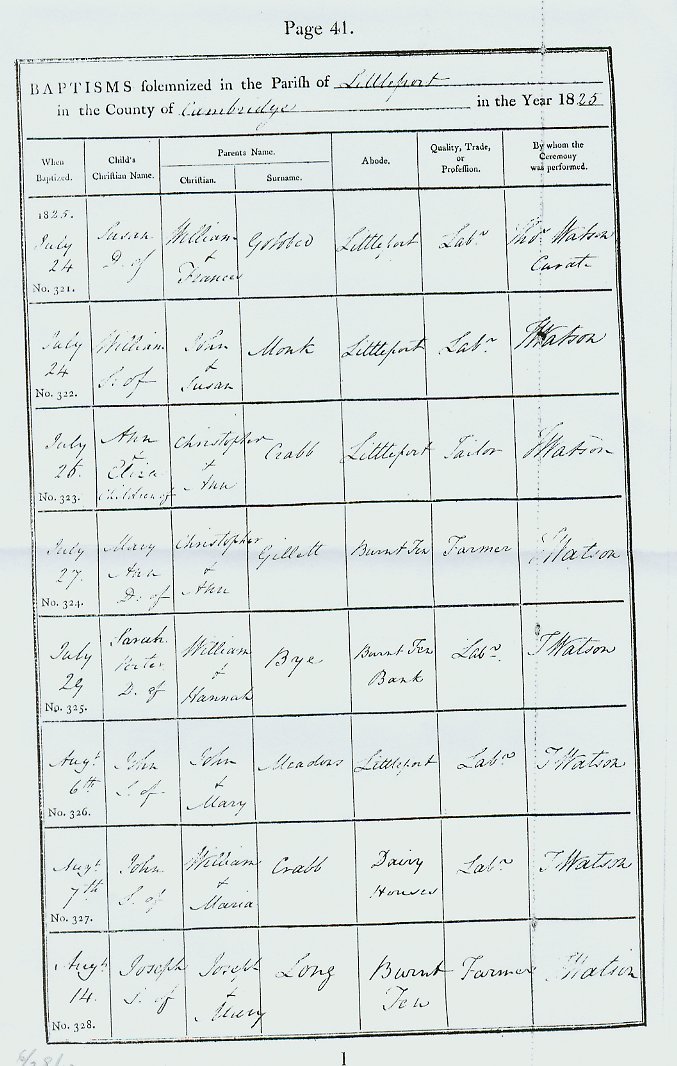 Page 41.
BAPTISMS solemnized in the Parish of Littleport
in the County of Cambridge in the Year 1825
When Baptized. Child's Christian Name. Parents Name. Christian. Surname. Abode. Quality, Trade, or Profession. By whom the Ceremony was performed.
1825.
July 24 Susan D. of William & Frances Golobed Littleport Labr Thos Watson Curate
No. 321.
July 24 William S. of John & Susan Monk Littleport Labr TWatson
No. 322.
July 26 Ann & Eliza Children of Christopher & Ann Crabb Littleport Tailor TWatson
No. 323.
July 27 Mary Ann D. of Christopher & Ann Gillett Burnt Fen Farmer TWatson
No. 324.
July 29 Sarah Porter D. of William & Hannah Bye Burnt Fen Bank Labr TWatson
No. 325.
Augt 6th John S. of John & Mary Meadows Littleport Labr TWatson
No. 326.
Augt 7th John S. of William & Maria Crabb Dairy Houses Labr TWatson
No. 327.
Augt 14. Joseph S. of Joseph & Mary Long Burnt Fen Farmer TWatson
No. 328.
I